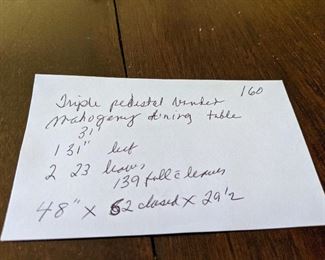 160
Triple pedestal
Mahogany dining table
31"
1 31" leaf
2 23 leaves
139 full c̄ leaves
48" x 62 closed x 29 1/2